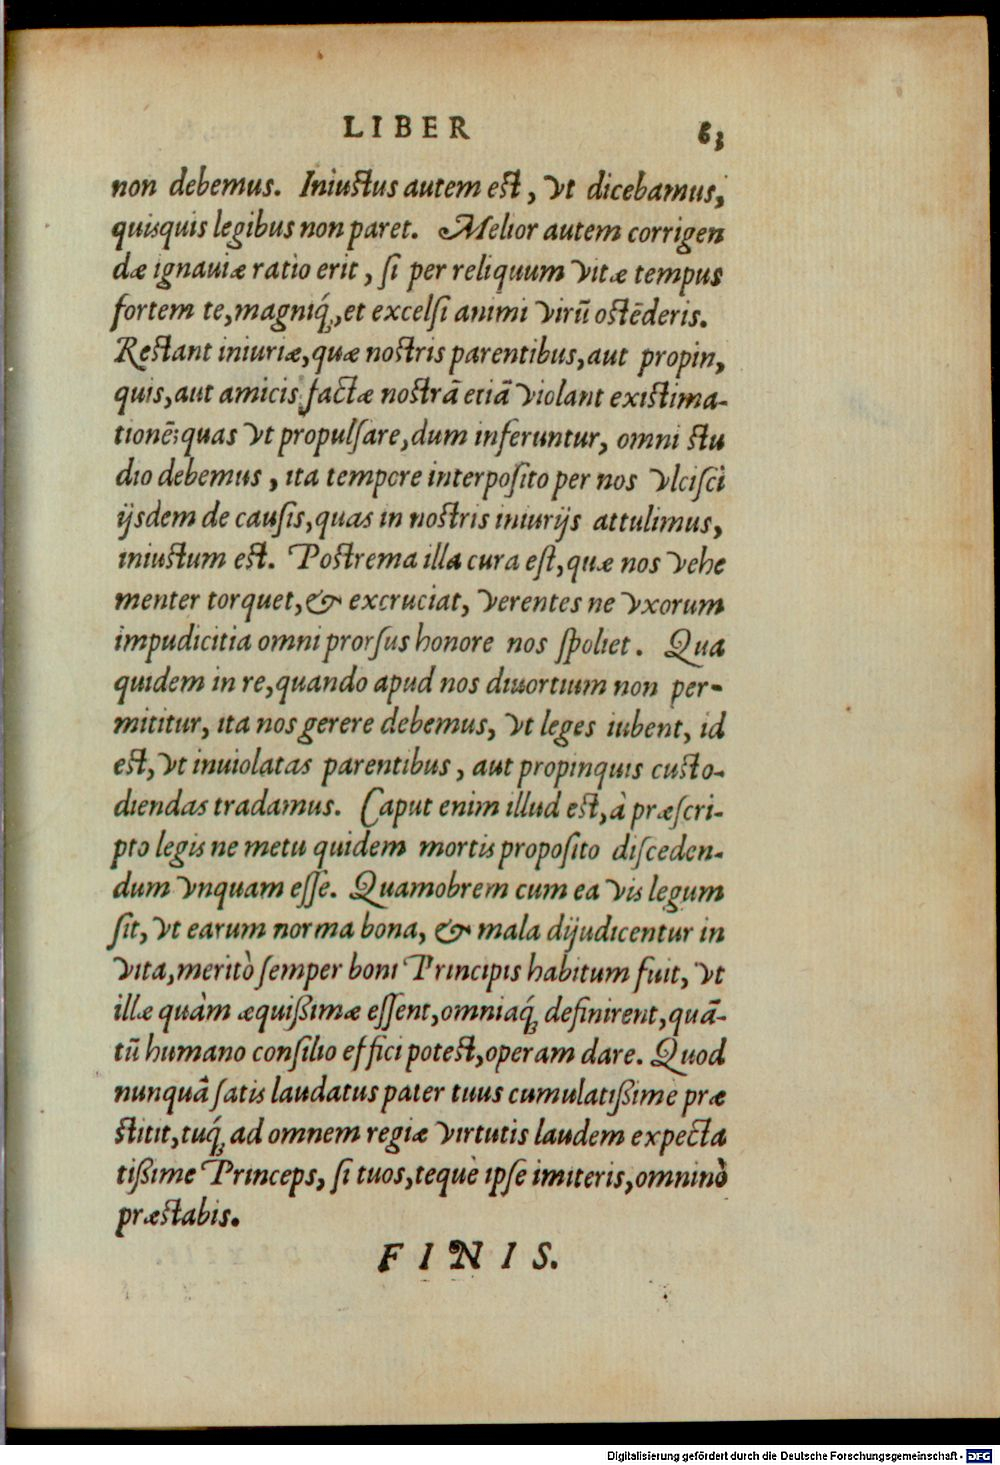 LIBER 63
non debemus. Iniustus autem est, vt dicebamus,
quisquis legibus non paret. Melior autem corrigen
dæ ignauiæ ratio erit, ſi per reliquum vitæ tempus
fortem te, magniq́;, et excelſi animi virũ ostẽderis.
Restant iniuriæ, quæ nostris parentibus, aut propin,
quis, aut amicis factæ nostrã etiã violant existima-
tionẽ: quas vt propulſare, dum inferuntur, omni stu
dio debemus, ita tempore interpoſito per nos vlciſci
ijsdem de cauſis, quas in nostris iniurijs attulimus,
iniustum est. Postrema illa cura eſt, quæ nos vehe
menter torquet, & excruciat, verentes ne vxorum
impudicitia omni prorſus honore nos ſpoliet. Qua
quidem in re, quando apud nos diuortium non per-
mititur, ita nos gerere debemus, vt leges iubent, id
est, vt inuiolatas parentibus, aut propinquis custo-
diendas tradamus. Caput enim illud est, à præſcri-
pto legis ne metu quidem mortis propoſito diſceden-
dum vnquam eſſe. Quamobrem cum ea vis legum
ſit, vt earum norma bona, & mala dijudicentur in
vita, meritò ſemper boni Principis habitum fuit, vt
illæ quàm æquißimæ eſſent, omniaq́; definirent, quã-
tũ humano conſilio effici potest, operam dare. Quod
nunquã ſatis laudatus pater tuus cumulatißimè præ
stitit, tuq́; ad omnem regiæ virtutis laudem expecta
tißime Princeps, ſi tuos, tequè ipſe imiteris, omninò
præstabis.
FINIS.
Digitalisierung gefördert durch die Deutsche Forschungsgemeinschaft - DFG